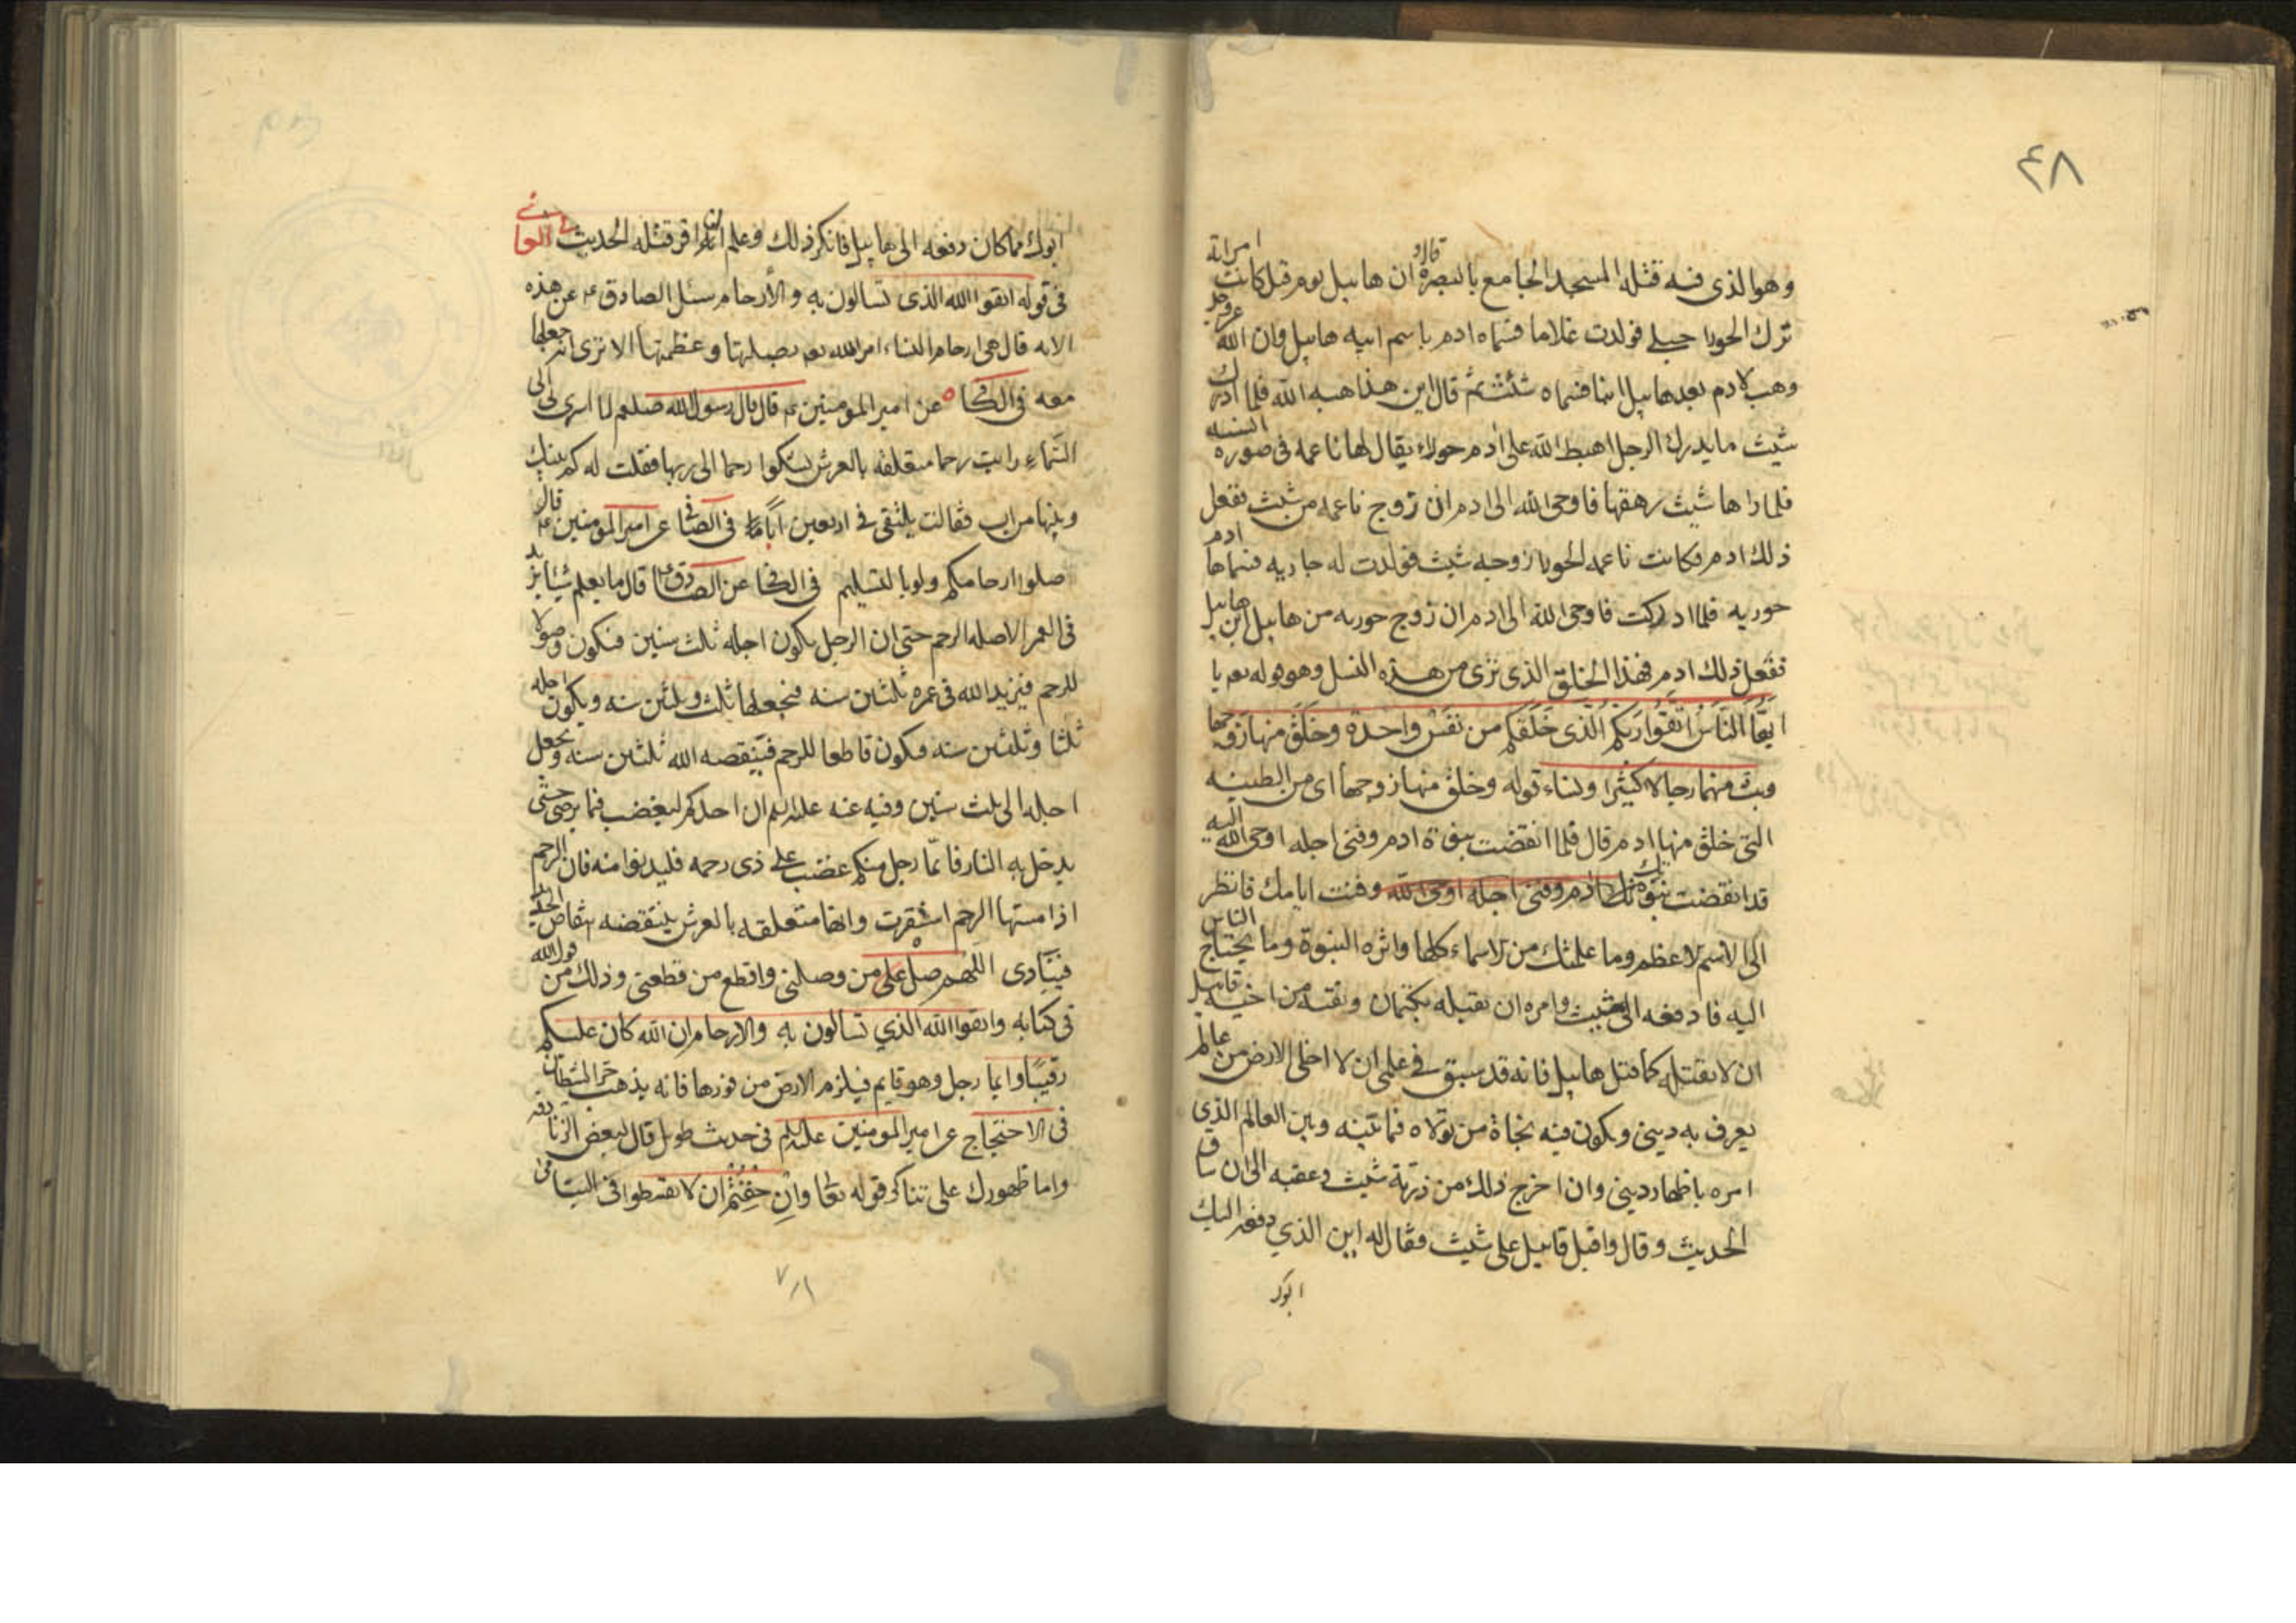 ٤٨
وهو الذى فيه قتله المسجد الجامع بالبصرة قال و ان هابيل يوم قتل كانت امراته
ترك الحورا حبلى فولدت غلاما فسماه ادم باسم ابيه هابيل وان الله عزوجل
وهب لادم بعد هابيل ابنا فسماه شيث ثم قال ابن هذا هبه الله فلما ادرك
شيث ما يدرك الرجل اهبط الله على ادم حوراء يقال لها ناعمه فى صوره انسيه
فلما راها شيث رهقها فاوحى الله الى ادم ان زوج ناعمه من شيث ففعل
ذلك ادم فكانت ناعمه الحورا زوجه شيث فولدت له جاريه فسماها ادم
حوريه فلما ادركت فاوحى الله الى ادم ان زوج حوريه من هابيل ابن هابيل
ففعل ذلك ادم فهذا الخلق الذى ترى من هذه النسل وهو قوله تعه يا
ايها الناس اتقوا ربكم الذى خلقكم من نفس واحدة وخلق منها زوجها
وبث منهما رجالا كثيرا ونساء قوله وخلق منها زوجها اى من الطينه
التى خلق منها ادم قال فلما انقضت نبوة ادم وفنى اجله اوحى الله اليه
قد انقضت نبوتك ادم وفنى اجله اوحى الله وفنت ايامك فانظر
الى الاسم الاعظم وما علمتك من الاسماء كلها واثره النبوة وما يحتاج الناس
اليه فادفعه الى شيث وامره ان يقبله بكتمان وتقيه من اخيه قابيل
ان لا يقتله كما قتل هابيل فانه قد سبق فى علمى ان لا اخلى الارض من عالم
يعرف به دينى ويكون فيه نجاة من تولاه فما بينه وبين العالم الذى
امره باظهار دينى وان اخرج ذلك من ذرية شيث وعقبه الى ان ساق
الحديث وقال واقبل قابيل على شيث فقال له اين الذي دفعه اليك
ابوك
ابوك مما كان دفعه الى هابيل فانكر ذلك وعلم انه ان اقر قتله الحديث
فى قوله اتقوا الله الذى تسالون به والارحام سئل الصادق ع عن هذه
الايه قال هى ارحام الناس امر الله تعه بصلتها وعظمتها الا ترى انه جعلها
معه فى الكافى عن امير المومنين ع قال قال رسول الله صلعم لما اسرى بى الى
السماء رايت رحما متعلقه بالعرش يشكوا رحما الى ربها فقلت له كم بينك
وبينها من اب فقالت نلتقى فى اربعين ابا فى الصافى عن امير المومنين ع قال
صلوا ارحامكم ولو بالتسليم فى الكافى عن الصادق ع قال ما يعلم شيئا يزيد
فى العمر الا صله الرحم حتى ان الرجل يكون اجله ثلث سنين فيكون وصولا
للرحم فيزيد الله فى عمره ثلثين سنه فيجعلها ثلث وثلثين سنه ويكون اجله
ثلثا وثلثين سنه فيكون قاطعا للرحم فينقصه الله ثلثين سنه ويجعل
اجله الى ثلث سنين وفيه عنه عليه السلم ان احدكم ليغضب فما يرضى حتى
يدخل به النار فايما رجل منكم غضب على ذى رحمه فليدنوا منه فان الرحم
اذا مستها الرحم استقرت وانها متعلقه بالعرش ينتقضه انتقاض الحديد
فينادى اللهم صل على من وصلنى واقطع من قطعنى وذلك من قول الله
فى كتابه واتقوا الله الذي تسالون به والارحام ان الله كان عليكم
رقيبا وايما رجل وهو قايم فيلزم الارض من فورها فانه يذهب رجز الشيطان
فى الاحتجاج عن امير المومنين عليه السلم فى حديث طويل قال لبعض الزنادقه
واما ظهورك على تناكر قوله تعا وان خفتم ان لا تقسطوا فى اليتامى